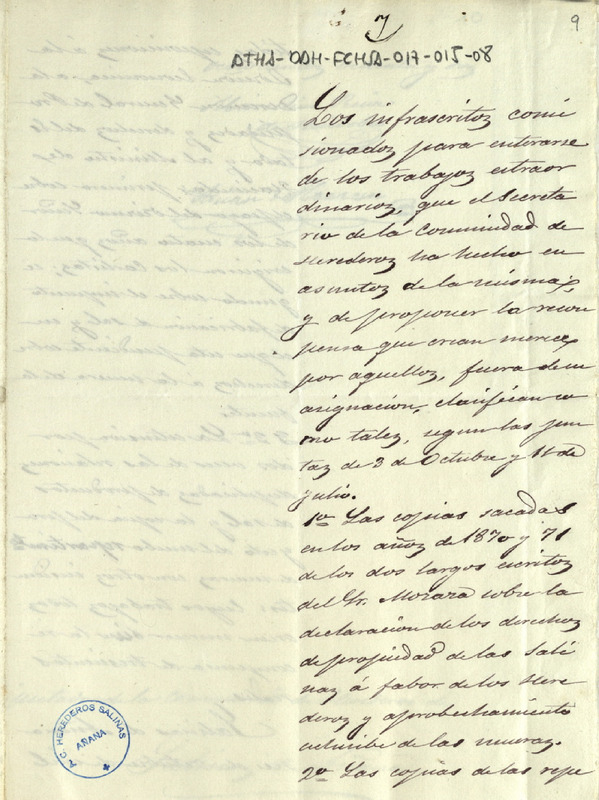 7
9
ATHA-DAH-FCHSA-017-015-08
Los infrascritoz comi
sionadoz para enterarse
de los trabajoz extraor
dinarioz, que el Secreta
rio de la Comunidad de
Herederoz ha hecho en
asuntoz de la misma;
y de proponer la recom
pensa que crian merece
por aquelloz, fuera de su
asignacion, clarifican co
mo talez, segun las jun
taz de 3 de Octubre y 11 de
julio.
1º Las copias sacadas
en los añoz de 1870 y 71
de los dos largos escritoz
del Sr. Moraza sobre la
declaracion de los derechoz
de propiedad de las Sali
naz á fabor de los Here
deroz y aprobechamiento
esclusibe de las mueraz.
2º Las copias de las repe
A. C. HEREDEROS SALINAS
AÑANA